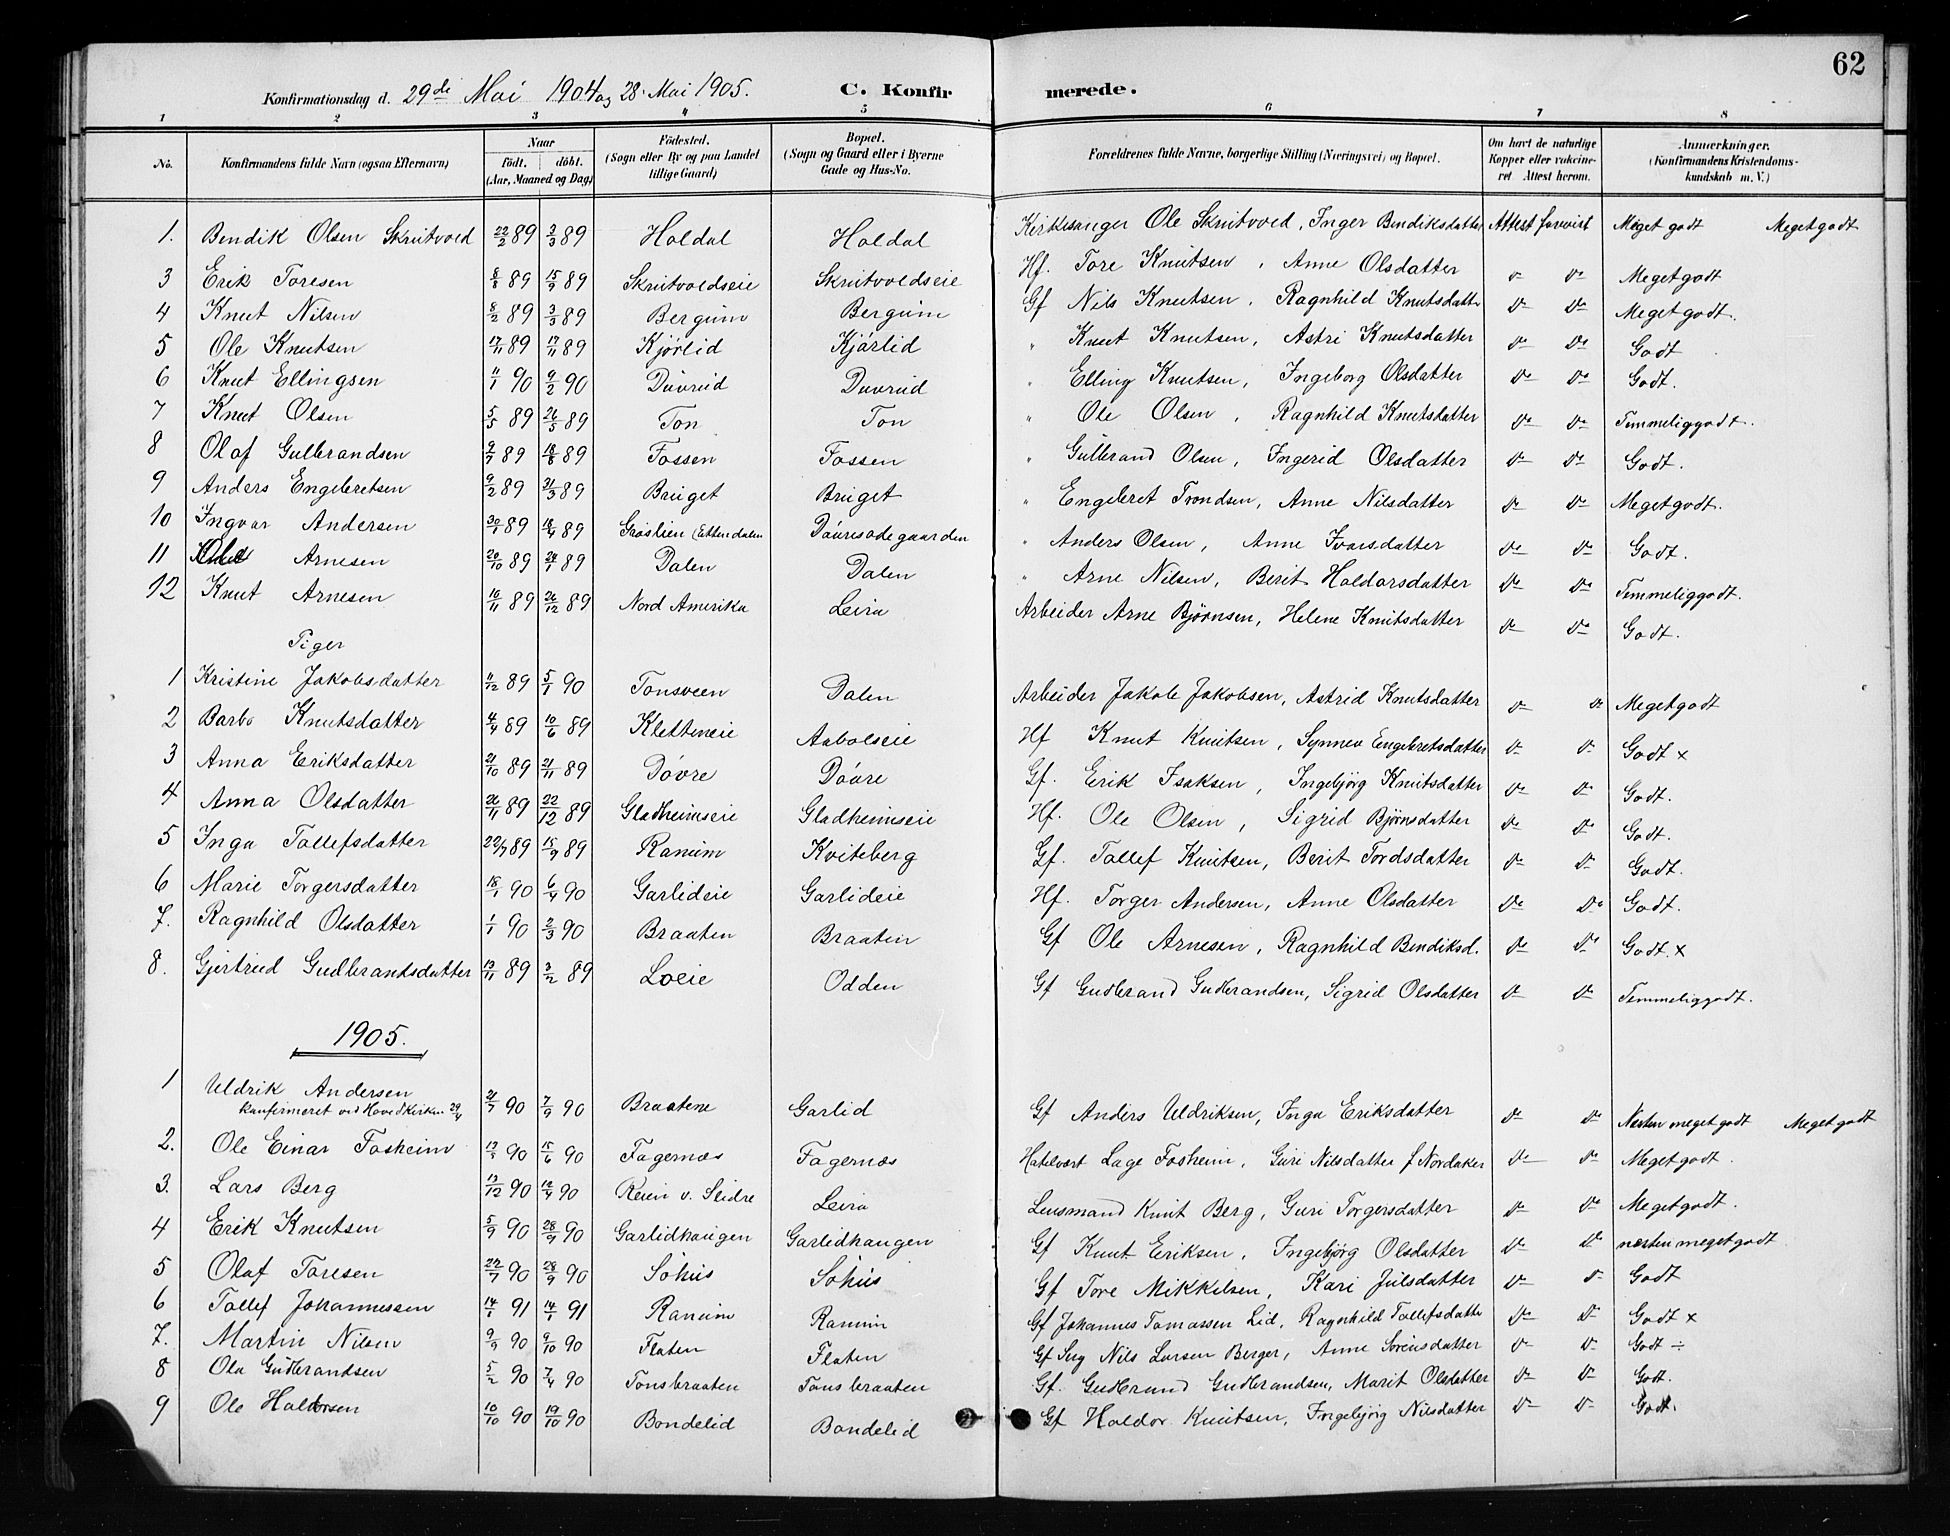 62
Konfirmationsdag d. 29de Mai 1904 og 28. Mai 1905. C. Konfirmerede.
1 2 3 4 5 6 7 8
No. Konfirmandens fulde Navn (ogsaa Efternavn) Naar födt. döbt. (Aar, Maaned og Dag) Födested. (Sogn eller By og paa Landet tillige Gaard) Bopæl. (Sogn og Gaard eller i Byerne Gade og Hus-No. Forældrenes fulde Navne, borgerlige Stilling (Næringsvei) og Bopæl. Om havt de naturlige Kopper eller vakcineret Attest herom. Anmerkninger. (Konfirmandens Kristendomskundskab m. V.)
1. Bendik Olsen Skrutvold 22/2 89 3/3 89 Haldal Haldal Kirkesanger Ole Skrutvold, Inger Bendiksdatter Attest forevist Meget godt Meget godt
3 Erik Toresen 8/8 89 15/9 89 Skrutvoldseie Skrutvoldseie Hf. Tore Knutsen, Anne Olsdatter Do Do Meget godt
4 Knut Nilsen 8/2 89 3/3 89 Bergum Bergum Gf Nils Knutsen, Ragnhild Knutsdatter Do Do Meget godt.
5 Ole Knutsen 17/11 89 17/11 89 Kjørlid Kjørlid " Knut Knutsen, Astri Knutsdatter Do Do Godt
6 Knut Ellingsen 11/1 90 9/2 90 Duvrud Duvrud " Elling Knutsen, Ingeborg Olsdatter Do Do Godt.
7 Knut Olsen 5/5 89 26/5 89 Ton Ton " Ole Olsen, Ragnhild Knutsdatter Do Do Temmelig godt.
8 Olaf Gulbrandsen 9/7 89 18/8 89 Fossen Fossen " Gulbrand Olsen, Ingerid Olsdatter Do Do Godt.
9 Anders Engebretsen 9/2 89 31/3 89 Bruget Bruget " Engebret Trondsen, Anne Nilsdatter Do Do Meget godt.
10 Ingvar Andersen 30/1 89 18/4 89 (Ettendalen " Anders Olsen, Anne Ivarsdatter Do Do Godt.
11 Arnesen 20/10 89 89 Dalen Dalen " Arne Nilsen, Berit Haldorsdatter Do Do Temmelig godt.
12 Knut Arnesen 10/11 89 26/12 89 Nord Amerika Leira Arbeider Arne Bjørnsen, Helene Knutsdatter Do Do Godt.
Piger
1 Kristine Jakobsdatter 11/12 89 5/1 90 Tonsveen Dalen Arbeider Jakob Jakobsen, Astrid Knutsdatter Do Do Meget godt
2 Barbo Knutsdatter 4/4 89 10/6 89 Kletteneie Aabolseie Hf Knut Knutsen, Synnev Engebretsdatter Do Do Godt x
3 Anna Eriksdatter 21/10 89 21/11 89 Dóvre Dóvre Gf. Erik Isaksen, Ingebjørg Knutsdatter Do Do Godt.
4 Anna Olsdatter 26/11 89 22/12 89 Gladheimseie Gladheimseie Hf. Ole Olsen, Sigrid Bjørnsdatter Do Do Godt.
5 Inga Tollefsdatter 22/7 89 15/9 89 Ranum Kviteberg Gf. Tollef Knutsen, Berit Tordsdatter Do Do Godt.
6 Marie Torgersdatter 18/1 90 6/4 90 Garlideie Garlideie Hf. Torger Andersen, Anne Olsdatter Do Do Godt.
7. Ragnhild Olsdatter 1/1 90 2/3 90 Braaten Braaten Gf Ole Arnesen, Ragnhild Bendiksd. Do Do Godt. x
8. Gjertrud Gudbrandsdatter 13/11 89 89 Loeie Odden Gf Gudbrand Gudbrandsen, Sigrid Olsdatter Do Do Temmelig godt.
1905.
1 Uldrik Andersen 21/7 90 7/9 90 Braatene Garlid Gf Anders Uldriksen, Inga Eriksdatter Do Do Næsten meget godt Meget godt
konfirmeret ved Hovedkirken 29/4
2. Ole Einar Fosheim 90 15/6 90 Fagernæs Fagernæs Hotelvært Lage Fosheim, Guri Nilsdatter f Nordaker Do Do Meget godt.
3. Lars Berg 13/12 90 12/4 90 Reien v. Slidre Leira Lensmand Knut Berg, Guri Torgersdatter Do Do Meget godt.
4 Erik Knutsen 5/9 90 28/9 90 Garlidhaugen Garlidhaugen Gf Knut Eriksen, Ingebjørg Olsdatter Do Do næsten meget godt
5 Olaf Toresen 22/7 90 28/9 90 Sóhus Sóhus Gf Tore Mikkelsen, Kari Julsdatter Do Do Godt
6 Tollef Johannessen 14/1 91 14/1 91 Ranum Ranum Gf Johannes Tomassen Lid, Ragnhild Tollefsdatter Do Do Godt x
7. Martin Nilsen 9/9 90 9/10 90 Flaten Flaten Gf Nils Larsen Berger, Anne Sörensdatter Do Do Godt ÷
8 Ola Gudbrandsen 5/2 90 7/4 90 Tonsbraaten Tonsbraaten Gf. Gudbrand Gudbrandsen, Marit Olsdatter Do Do Godt.
9 Ole Haldorsen 10/10 90 19/10 90 Bondelid Bondelid Gf Haldor Knutsen, Ingebjørg Nilsdatter Do Do Godt.